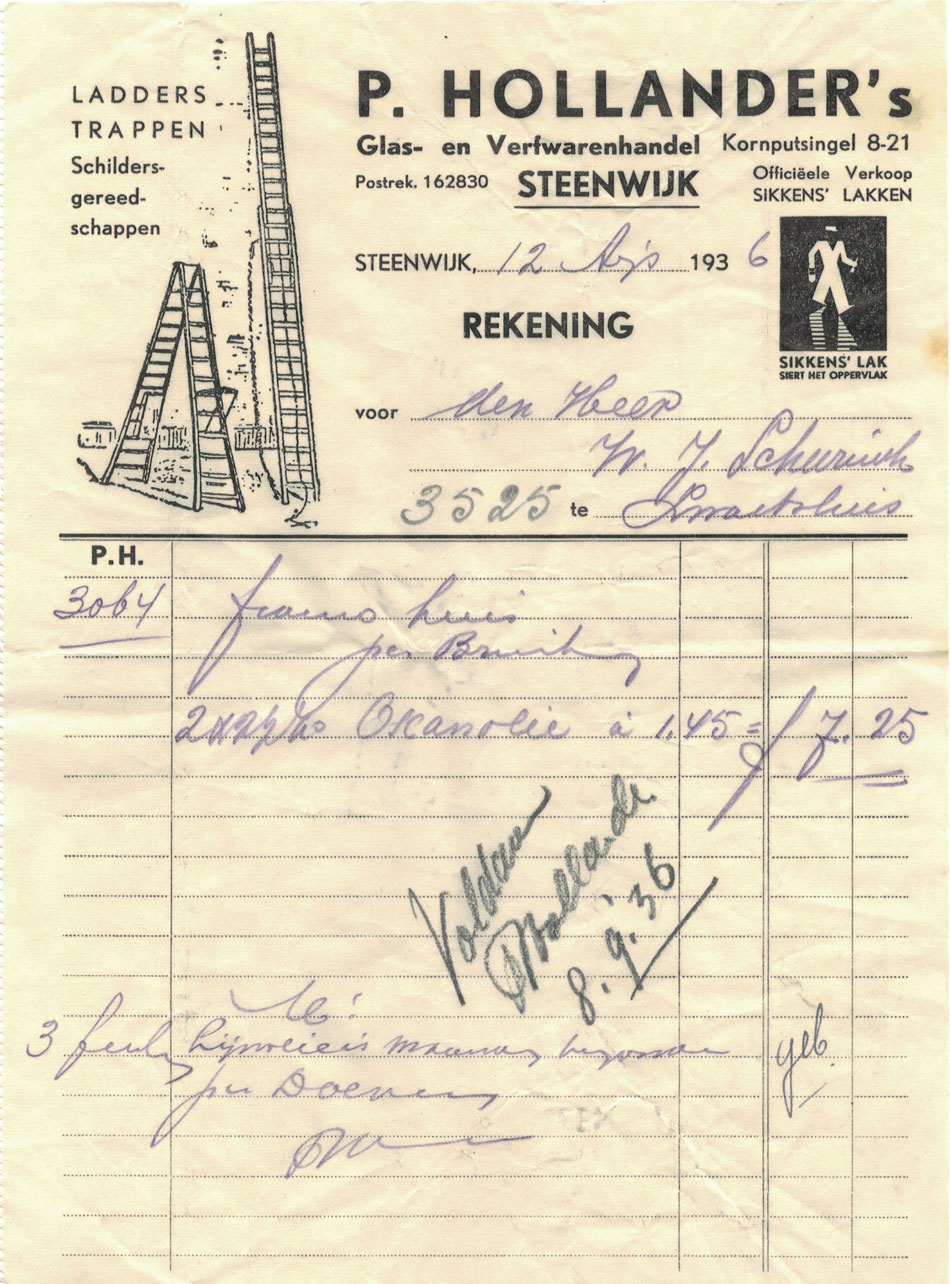 LADDERS
TRAPPEN
Schilders-
gereed-
schappen
P. HOLLANDER's
Glas- en Verfwarenhandel Kornputsingel 8-21
Postrek. 162830 STEENWIJK
Officiëele Verkoop
SIKKENS' LAKKEN
STEENWIJK, 12 1936
SIKKENS' LAK
SIERT HET OPPERVLAK
REKENING
voor den Heer
W. J.
3525 te
P.H.
3064 franco huis
per
à 1.45 = f 7.25
Voldaan
PHollander
8.9.36
3
per
geb.